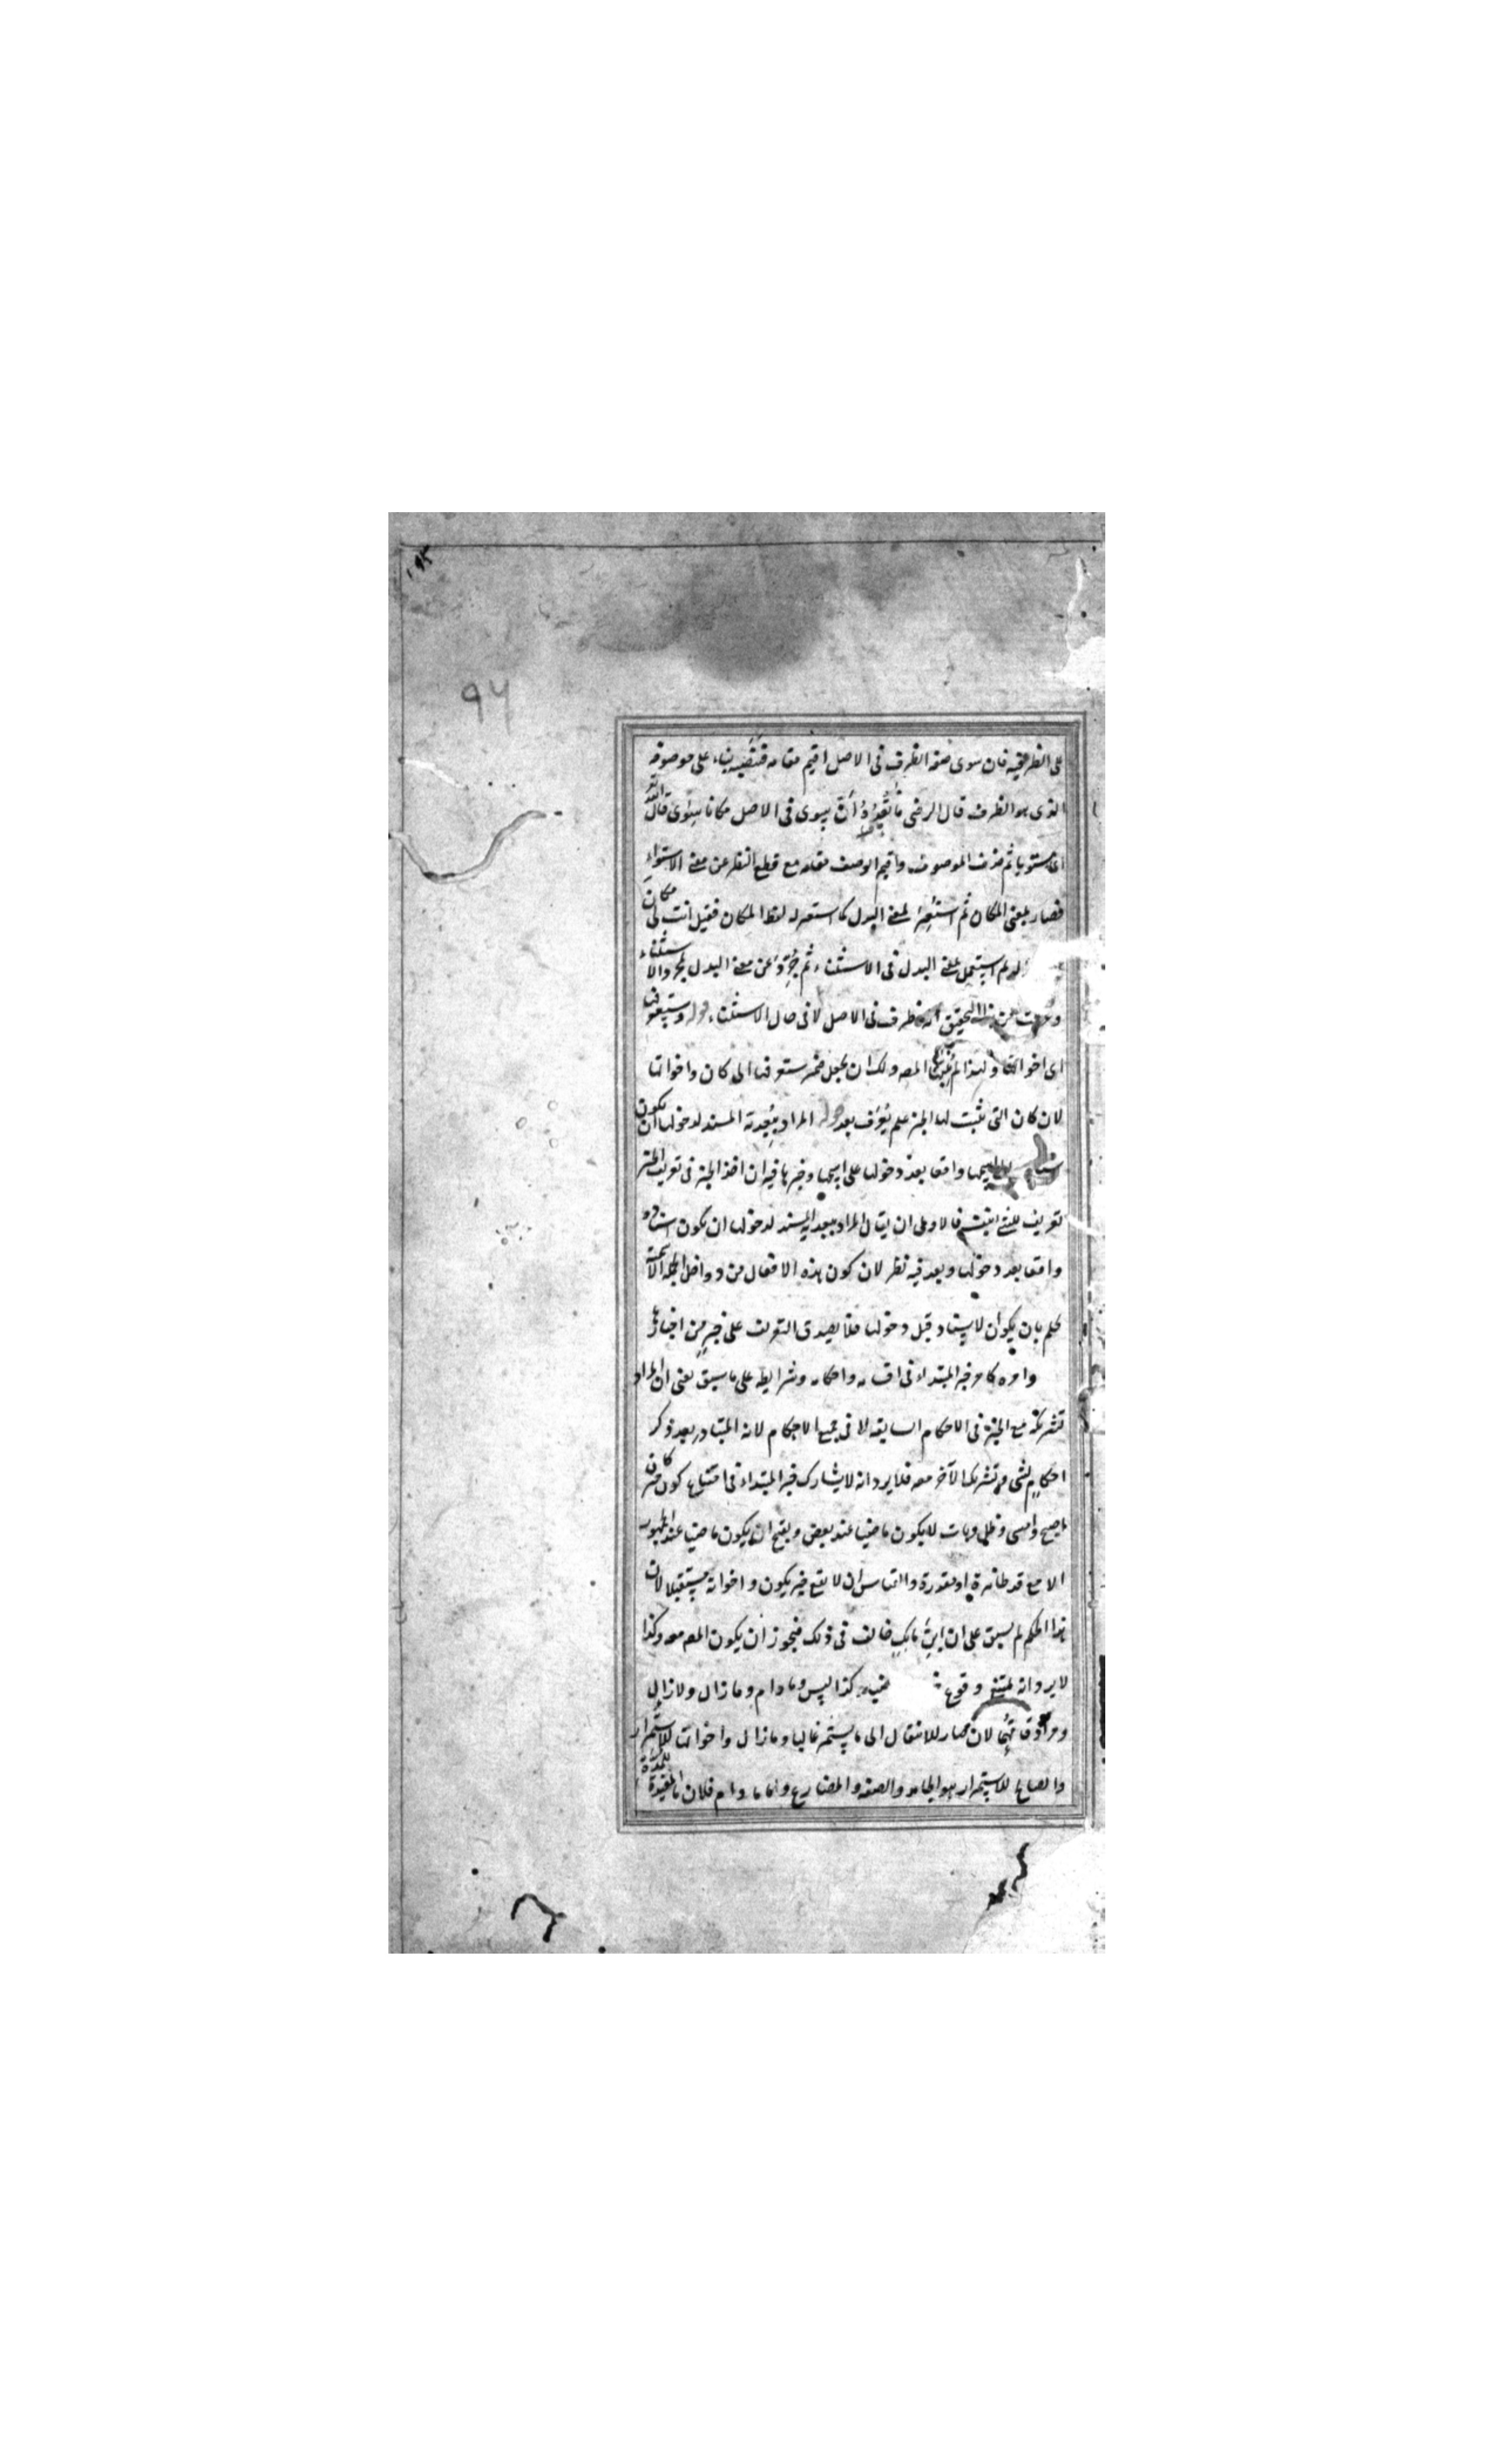 ١٩٣
٩٧
على الظرفية فان سوى صفة الظرف فى الاصل اقيم مقامه فنصبه بناء على موصوفه
الذى هو الظرف قال الرضى ما تقديره ان سوى فى الاصل مكانا سوى قال الله
اى مستويا ثم حذف الموصوف واقيم الوصف مقامه مع قطع النظر عن معنى الاستواء
فصار بمعنى المكان ثم استعير لمعنى البدل كما استعير له لفظ المكان فقيل انت لى مكان
لم استعمل بمعنى البدل فى الاستثناء ثم جرد عن معنى البدل لمجرد الاستثناء
وعرفت من هذا التحقيق انه ظرف فى الاصل لا فى حال الاستثناء قوله وستعرفها
اى اخواتها ولهذا لم المص ولك ان تجعل ضمير ستعرفها الى كان واخواتها
لان كان التى تثبت لها الخبر لم يعرف بعد قوله المراد ببعدية المسند لدخولها ان يكون
واقعا بعد دخولها على اسمها وخبرها فيه ان اخذ الخبر فى تعريف الخبر
تعريف للشئ بنفسه فالاولى ان يقال المراد ببعدية المسند لدخولها ان يكون اسناده
واقعا بعد دخولها وبعد فيه نظر لان كون هذه الافعال من دواخل الجملة الاسمية
يحكم بان يكون الاسناد قبل دخولها فلا يصدق التعريف على خبر من اخبارها
وامره كامر خبر المبتداء فى اقسامه واحكامه وشرايطه على ما سبق يعنى ان المراد
تشريكه مع الخبر فى الاحكام السابقة لا فى جميع الاحكام لانه المتبادر بعد ذكر
احكام لشئ وتشريك الآخر معه فلا يرد انه لا يشارك خبر المبتداء فى امتناع كون خبر كان
واصبح وامسى وظل وبات لا يكون ماضيا عند بعض ويقبح ان يكون ماضيا عند الجمهور
الا مع قد ظاهرة او مقدرة والقياس ان لا يقع خبر يكون واخواته مستقبلا لان
هذا الحكم لم يسبق على ان ابن مالك خالف فى ذلك فيجوز ان يكون المص معه وكذا
لا يرد انه يمتنع وقوع كذا ليس وما دام وما زال ولا زال
ومرادفاتها لان صار للانتقال الى ما يستمر غالبا وما زال واخواتها للاستمرار
والصالح للاستمرار هو الجامد والصفة والمضارع واما ما دام فلان ما المفيدة للمدة